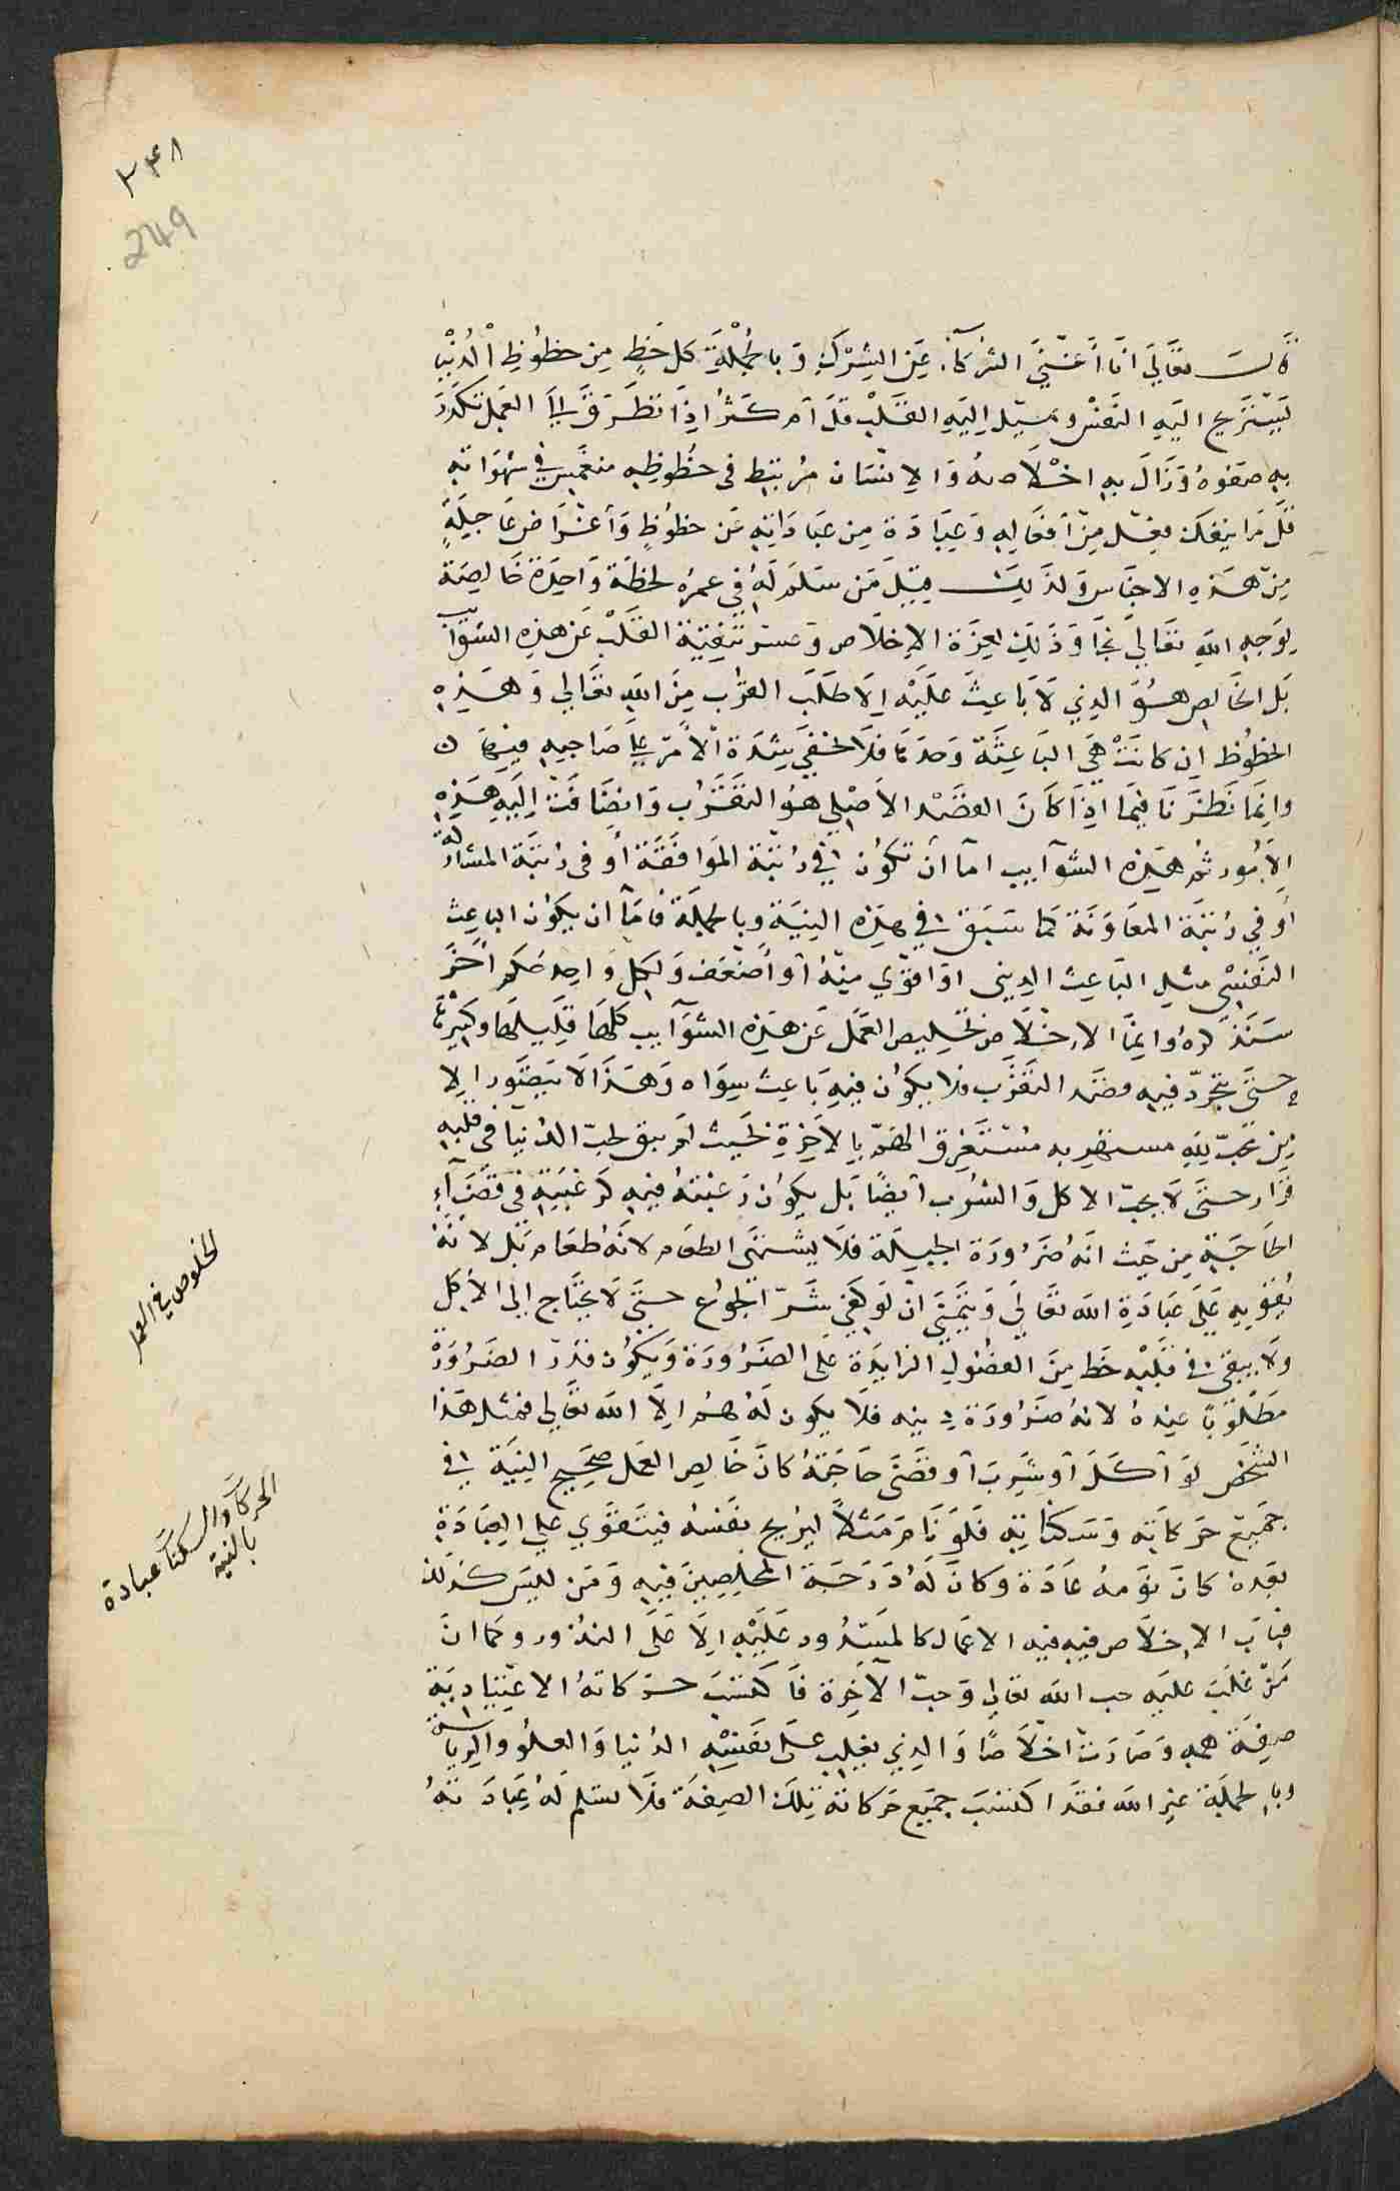 ٢٤٨
249
قَالَ تعَالَى انَا أَغنَى الشركَآءِ عَن الشِرْكِ وَبا لجُمْلَةِ كل حَظٍ مِن حظُوظِ الْدُنْيا
يَسْتَرِيح اليَهِ النفَسْ ويميل اِليَهِ القَلْب قلَ اَم كَثُرَ اذِا تَطَرَقَ اِلىَ العَمَلِ تكَدَرَ
بِهِ صَفوهُ وَزَالَ بهِ اخْلَاصهُ وَالاِنسَان مرُتبَط فى حظُوظِهِ منغَمِس فِي شهَوَاتهِ
قلَّ مَا ينفَكَ فعِل مِنْ أفعَالِهِ وَعِبَادَة مِن عبَادَاتِهِ عَن حظوُظٍ وَأغْرَاض عَاجِلَةٍ
مِنْ هَذِهِ الاجنَاس وَلذَلِكَ قِيلَ مَن سَلمَ لَهُ فِي عمرُهِ لحظَة وَاحِدَة خَالِصَة
لِوَجهِ اللهِ تعَالَى نجَا وَذَلِكَ لعِزَة الاِخلَاص وَعسْر تنقِيَة القَلْب عَن هذِهِ الشوَآيب
بَل الخَالِص هُوَ الذِي لَا بَاعِثَ عَليَهْ اِلَا طَلَبَ القرْب مِنَ اللهِ تعَالى وَهَذِهِ
الحظُوظ اِن كانَتْ هِيَ البَاعِثَة وَحدَهَا فلَا يخفىَ شِدَة اْلاَمر عَلىَ صَاحِبِهِ فيِهَا
وانِمَا نَظَرنَا فيِمَا اذِا كاَنَ القصَدْ الاَصْلِى هوُ التقَرُب وَانضَافَتْ اِليَهِ هَذِهِ
الاِمُور ثمُ هَذِهِ الشوَآيب امَا اَن تكوُن فِي رُتبَة الموَافقَة أو فى رُتبَة المشَارَكة
اَو فِي رُتبَة المعَاوَنَة كمَا سَبَقَ فِي هذِهِ النِيَة وبالجملَة فامَا ان يكوُن البَاعِث
النفَسِي مثِلِ البَاعِث الدِينى اوَ اقوَى مِنْهُ اَو أضعَفَ وَلكِل وَاحِد حُكم أخَر
سَنَذكرهُ وَانِمَا الاِخْلَاص تخَلِيص العَمَل عَن هَذِهِ الشوَآيب كلهَا قَلِيلهَا وكَثِيرهَا
حَتىَ يتجرَدّ فيِهِ قصَد التقَرُب فلَا يكوُن فيِهِ بَاعِث سِوَاه وَهَذَا لَا يتَصَوَر الِا
مِن محُبّ للهِ مستهترٍ به مُستَغرِق الهَمّ بِالاَخِرَةِ بحَيث لَم يبقَ لحِبّ الدُنيَا فى قلبِهِ
قرَار حَتىَ لَا يحبّ الاكل وَالشرُب اَيضًا بَل يكوُن رَغبَتهُ فيِهِ كرَغبَتِهِ فى قضَآءِ
الحَاجَةِ مِن حَيث انَهُ ضَرُورَة الجِبِلَة فلَا يشتهَى الطعَام لانَهُ طعَام بَل لانَهُ
يُقوِيهِ عَلىَ عبَادَةِ الله تعَالَى وَيتمَنىَ انْ لوَ كفِيَ شَرّ الجوُع حَتىَ لَا يحتَاج اِلى الأكل
ولَا يبقىَ فى قلبِهِ حَظ مِنَ الفضُولِ الزايدَة عَلى الضرُورَة وَيكوُن قدرْ الضرُورَة
مَطلوُبًا عِندهُ لانهُ ضرُورَة دِينِهِ فلَا يكون لهُ همُ اِلَا الله تعَالى فمثل هَذا
الشخَص لوَ اَكلَ أو شَرِبَ اَو قضَى حَاجَتهُ كانَ خَالِص العَمل صَحِيح النِيَة فِي
جمَيعَ حَرَكاتِه وَسَكناتِهِ فَلوَ نَامَ مَثلًا ليرُيح نفَسهُ فيتَقوَى عَلى العِبَادَةِ
بعَدهُ كانَ نوَمهُ عبَادَة وكانَ لَهُ دَرَجَة المخلِصِينَ فيِهِ وَمَن لَيسَ كَذلِكَ
فبَاب الاِخلَاص فيِهِ فيه الاعمَال كالمسَدُود عَليَهْ اِلَا عَلَى الندُور وكمَا انَ
مَنْ غلَبَ عَليَهِ حب الله تعَالى وَحبّ الآخِرَة فاَكتسَبَت حَرَكاتهُ الاعتِيَادِيَة
صِفَة همِهِ وَصَارَتْ اخلَاصًا وَالذِي يغَلِب عَلَى نفَسِهِ الدُنيا وَالعلو وَالرِيَاسَة
وبا لجمْلَة غير الله فقَد اكتسَبَ جمَيع حَرَكاتهُ تِلكَ الصِفَة فلَا تسلَم لَهُ عِبَادَتهُ
الخلوص في العمل
الحركات والسكنات عبادة
بالنية